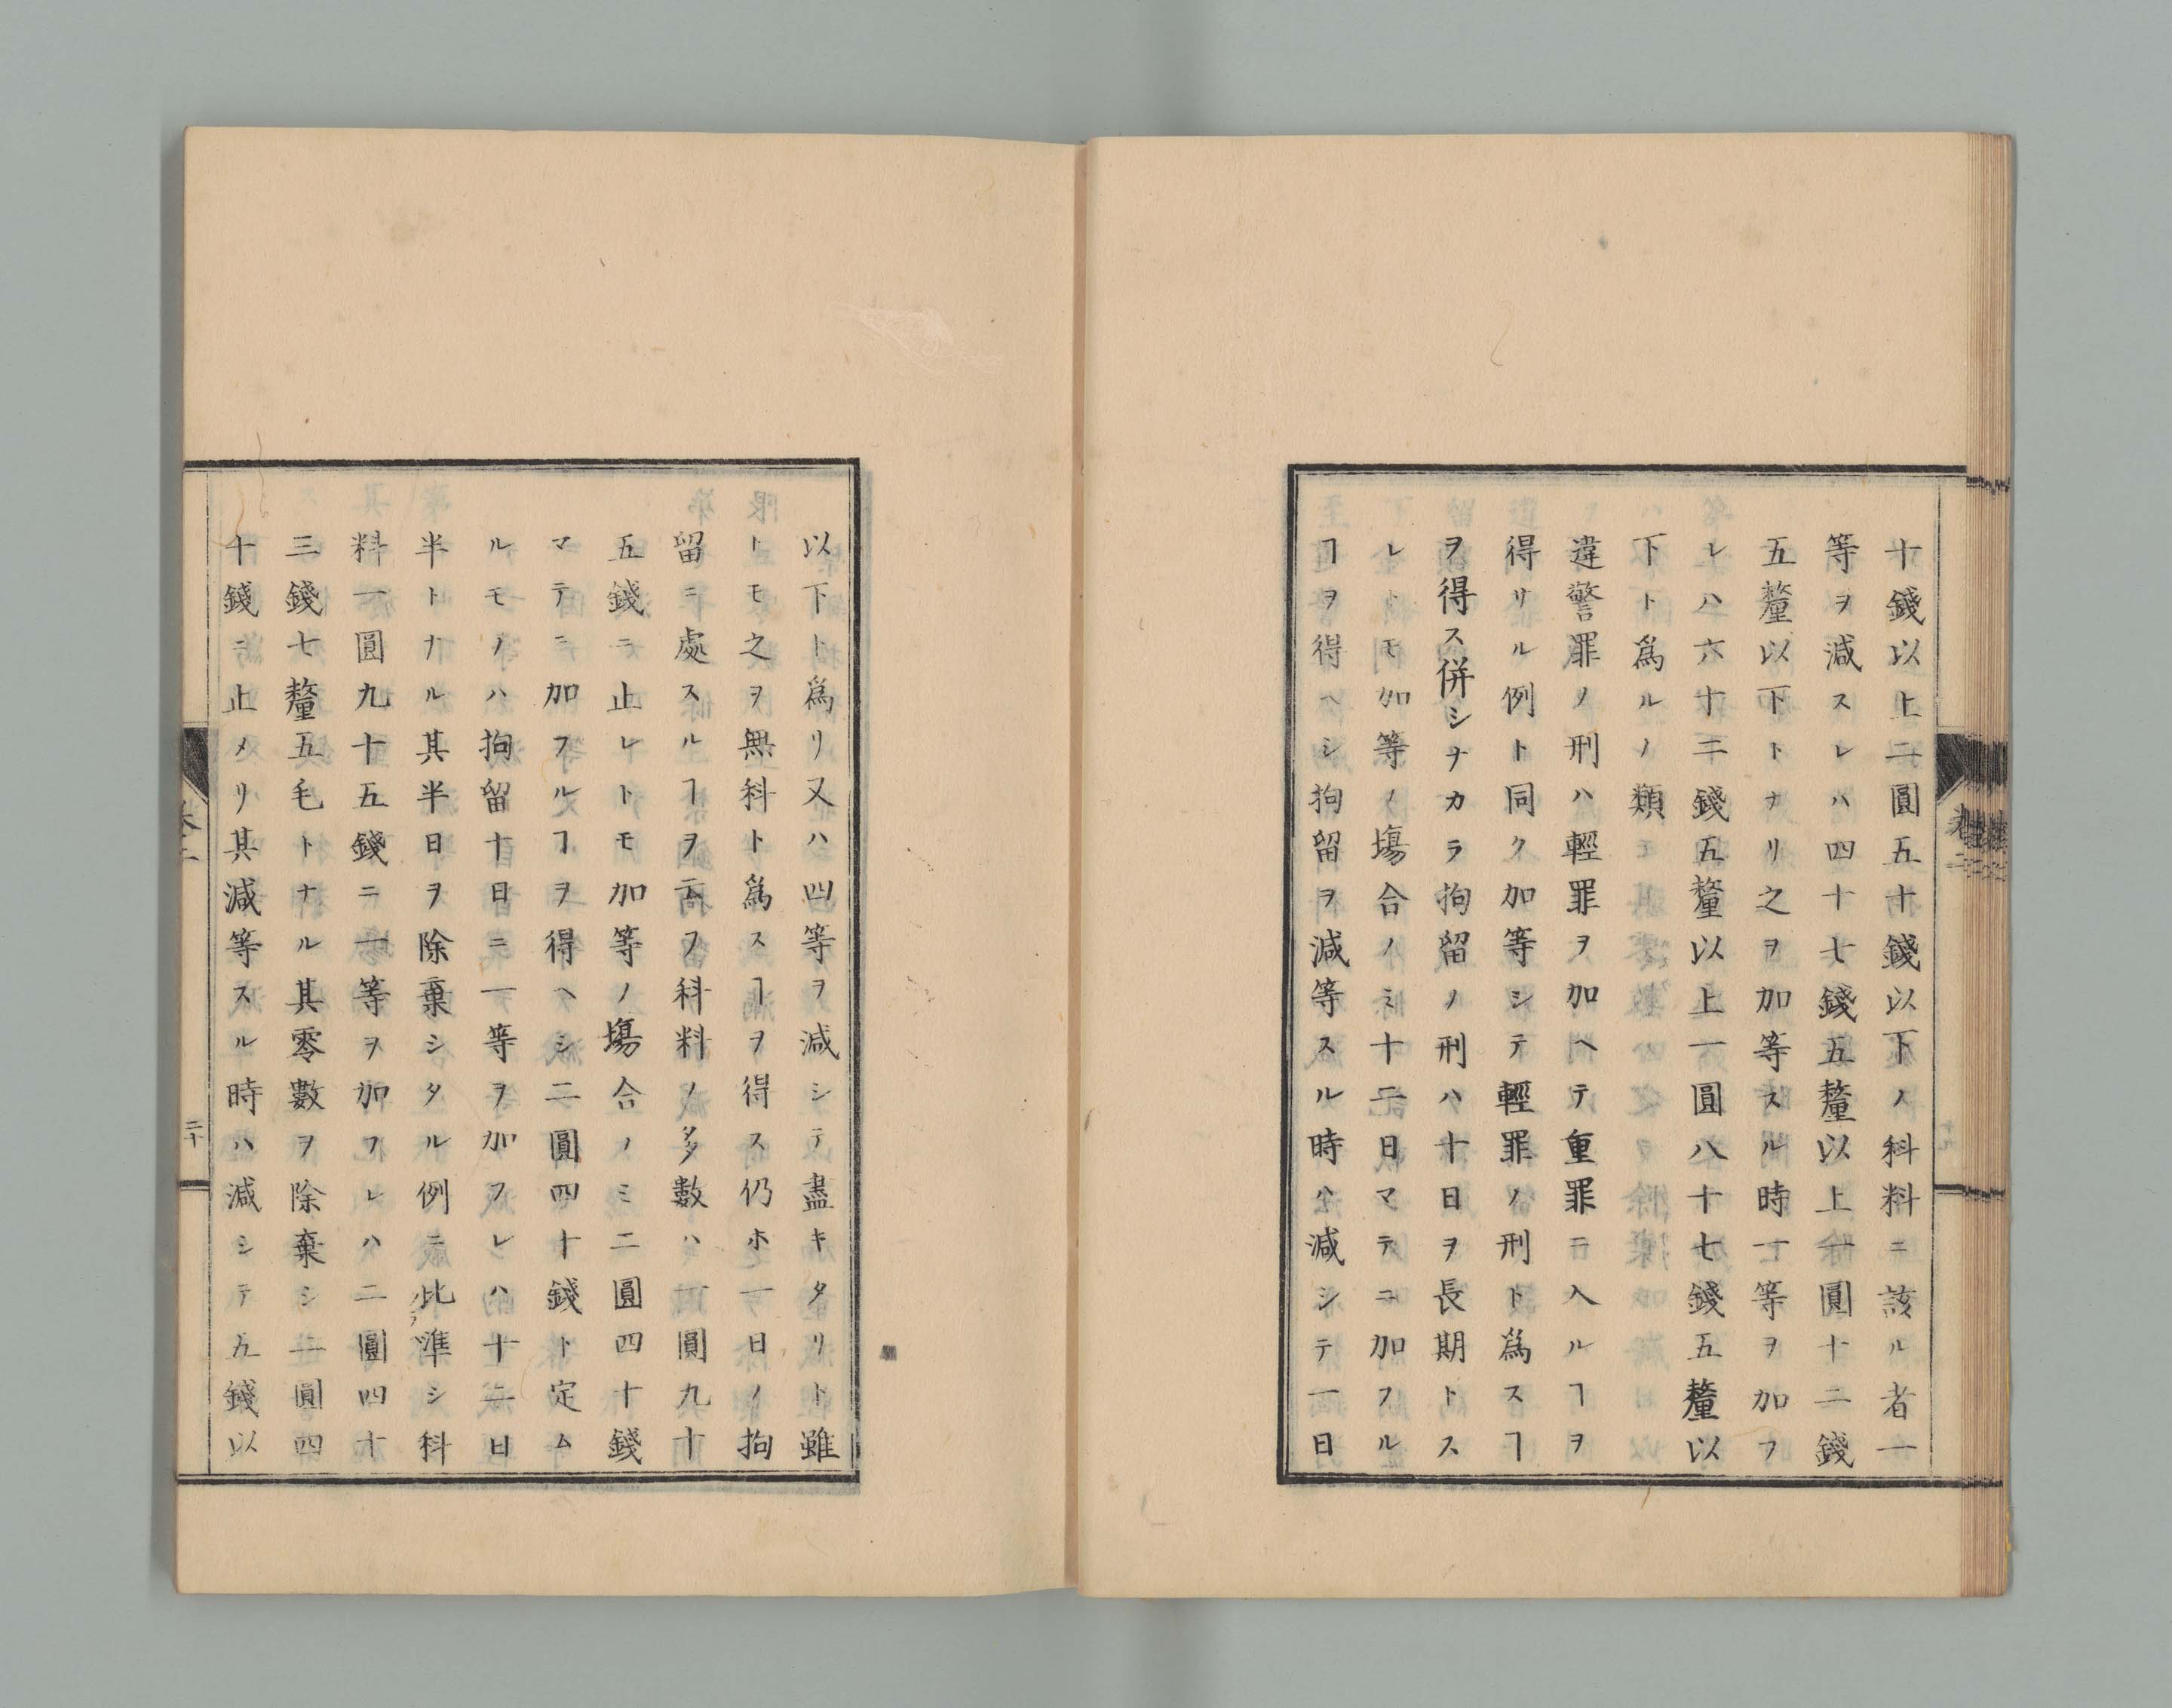 十錢以上二圓五十錢以下ノ科料ニ該ル者一
等ヲ減スレハ四十七錢五釐以上一圓十二錢
五釐以下トナリ之ヲ加等スル時一等ヲ加フ
レハ六十二錢五釐以上一圓八十七錢五釐以
下ト爲ルノ類
違警罪ノ刑ハ輕罪ヲ加ヘテ重罪ニ入ルヿヲ
得サル例ト同ク加等シテ輕罪ノ刑ト爲スヿ
ヲ得ス併シナカラ拘留ノ刑ハ十日ヲ長期トス
レトモ加等ノ塲合ノミ十二日マテニ加フル
ヿヲ得ヘシ拘留ヲ減等スル時ハ減シテ一日
以下ト爲リ又ハ四等ヲ減シテ盡キタリト雖
トモ之ヲ無科ト爲スヿヲ得ス仍ホ一日ノ拘
留ニ處スルヿヲ要フ科料ノ多數ハ一圓九十
五錢ニ止レトモ加等ノ塲合ノミ二圓四十錢
マテニ加フルヿヲ得ヘシ二圓四十錢ト定ム
ルモノハ拘留十日ニ一等ヲ加フレハ十二日
半トナル其半日ヲ除棄シタル例ニ比準シ科
料一圓九十五錢ニ一等ヲ加フレハ二圓四十
三錢七釐五毛トナル其零數ヲ除棄シ二圓四
十錢ニ止メリ其減等スル時ハ減シテ五錢以
卷二
二十
卷二